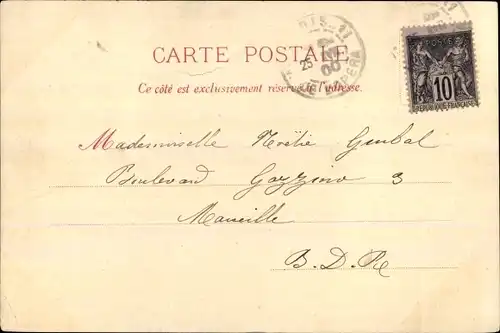 CARTE POSTALE
Ce côté est exclusivement réservé à l'adresse.
POSTES
10
RÉPUBLIQUE FRANÇAISE
Mademoiselle Noëlie
Boulevard Gozzino 3
Marseille
B.D.R